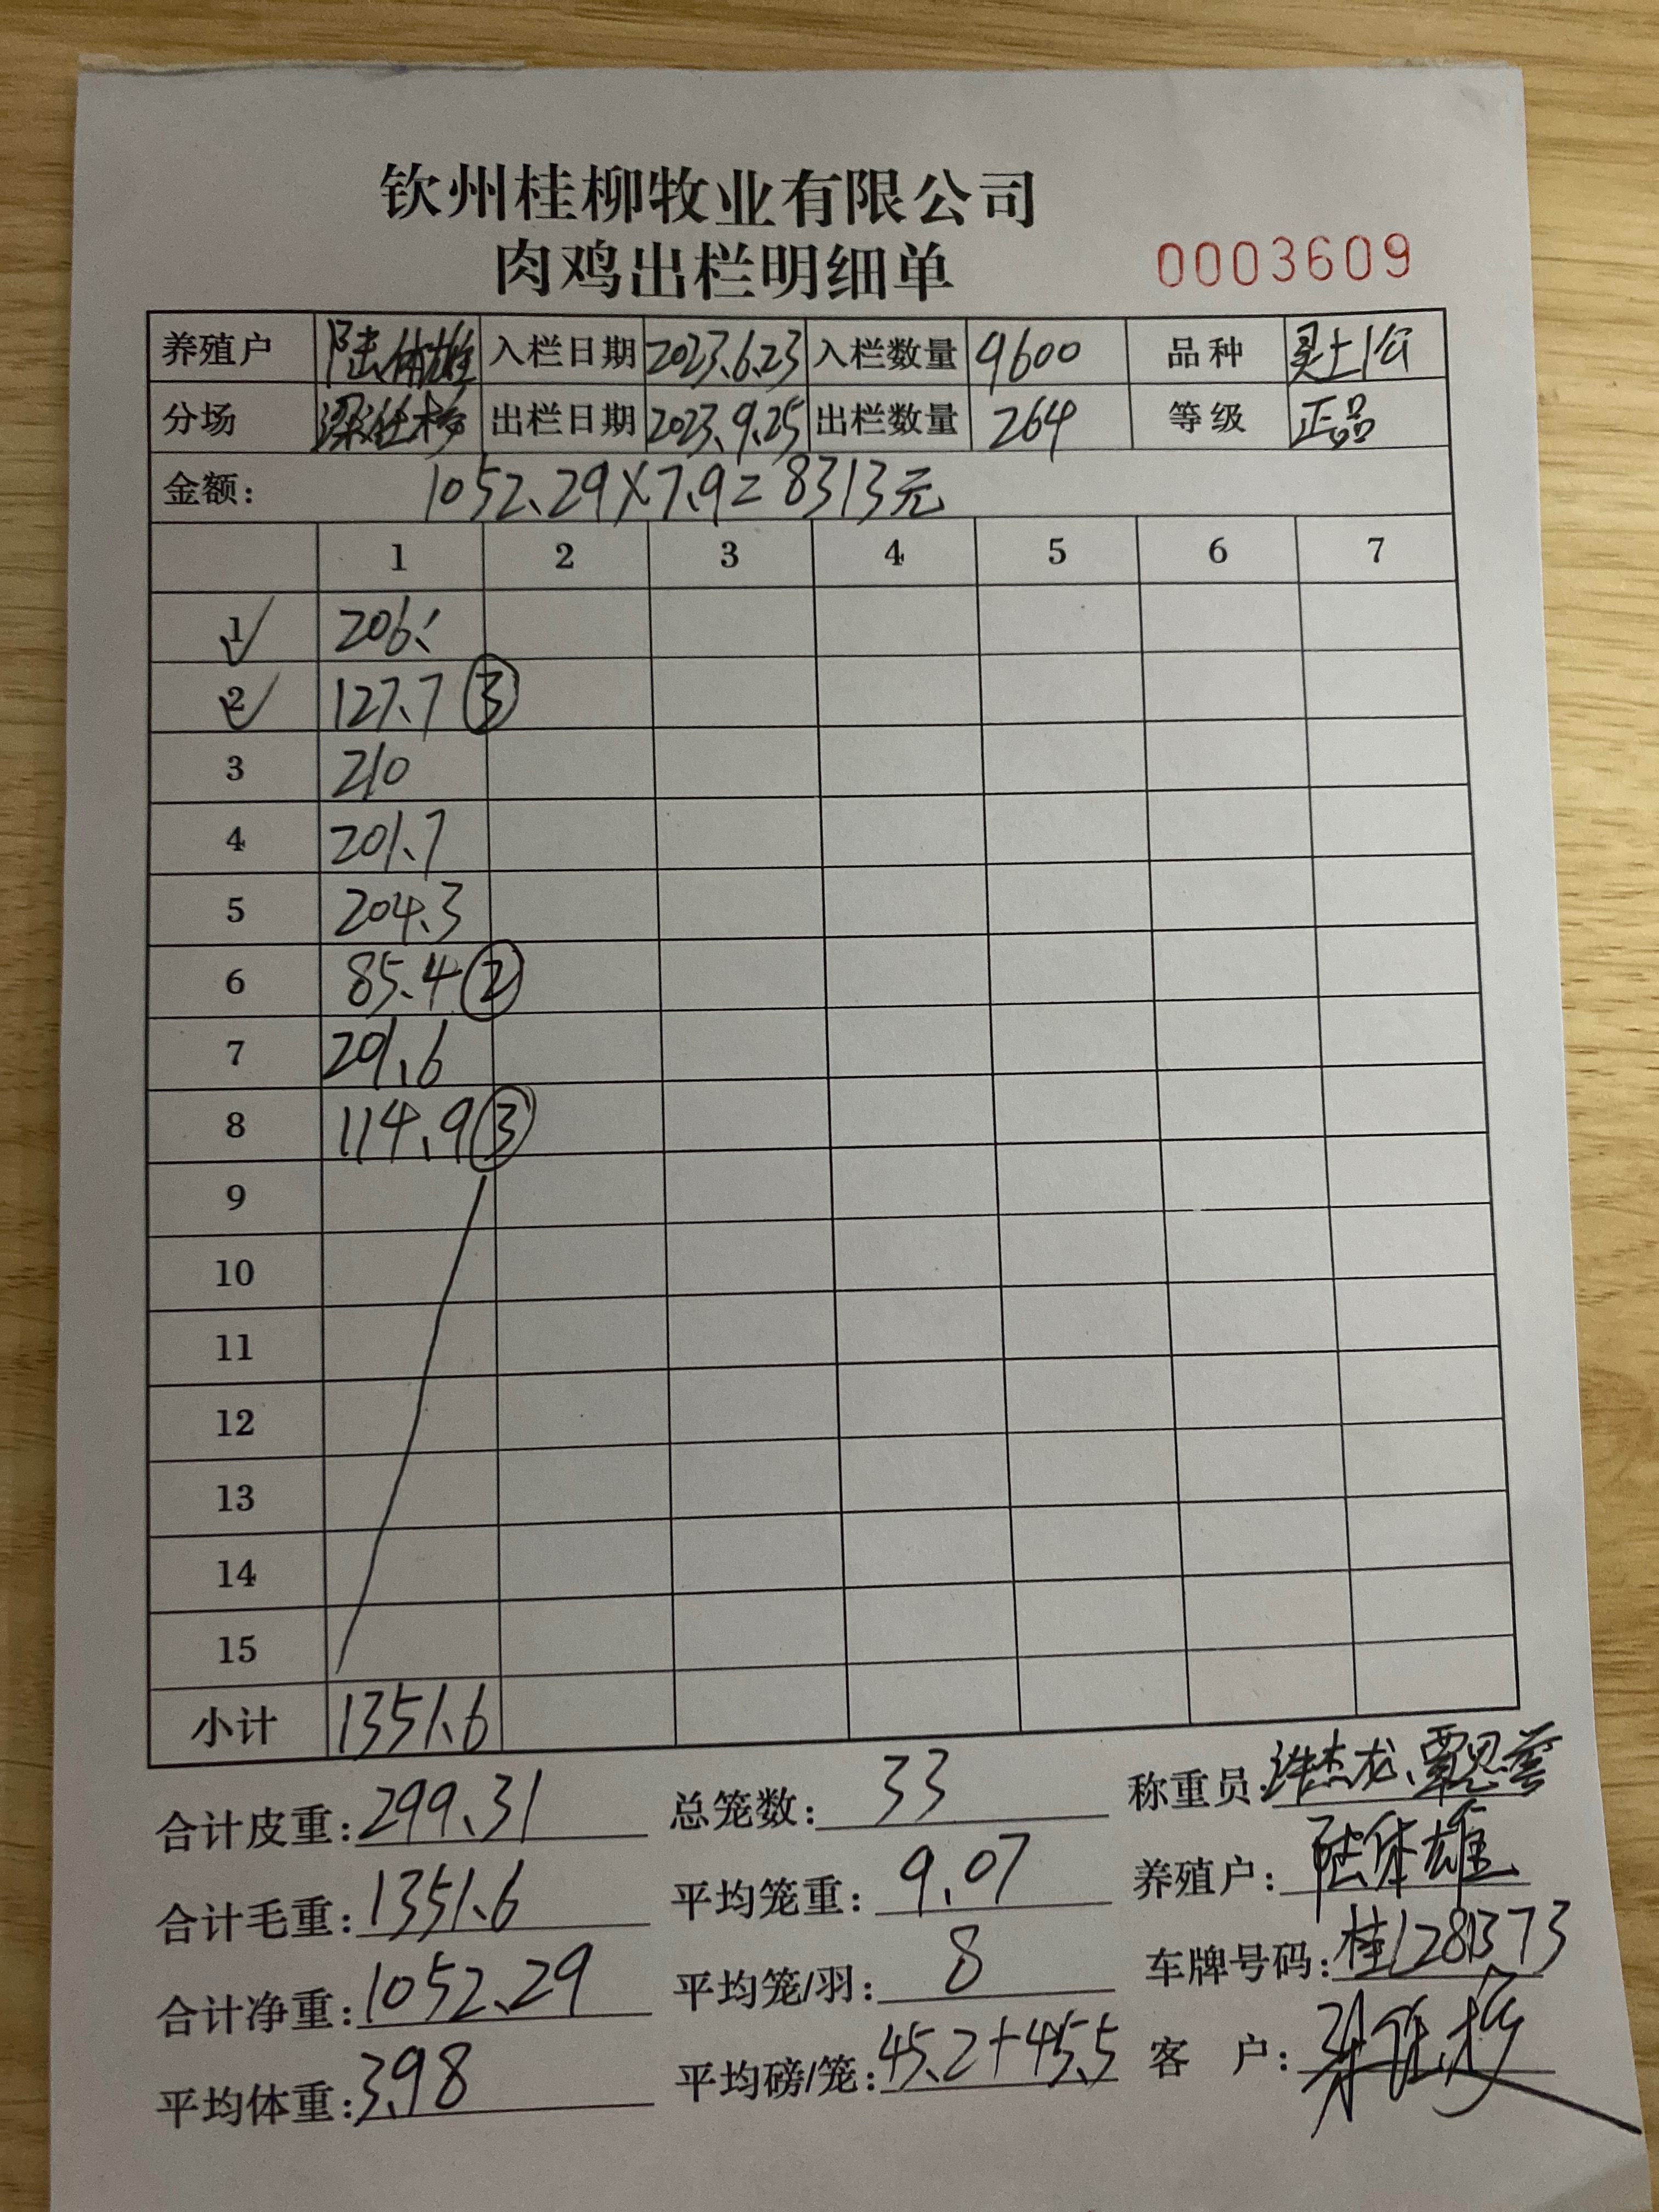 钦州桂柳牧业有限公司
肉鸡出栏明细单 0003609
养殖户 陆体雄 入栏日期 2023.6.23 入栏数量 9600 品种 灵土1公
分场 出栏日期 2023.9.25 出栏数量 264 等级 正品
金额: 1052.29×7.9=8313元
1 2 3 4 5 6 7
1 206
2 127.7 ③
3 210
4 201.7
5 204.3
6 85.4 ②
7 201.6
8 114.9 ③
9
10
11
12
13
14
15
小计 1351.6
合计皮重: 299.31 总笼数: 33 称重员: 杰龙、覃思
合计毛重: 1351.6 平均笼重: 9.07 养殖户: 陆体雄
合计净重: 1052.29 平均笼/羽: 8 车牌号码: 桂1281373
平均体重: 3.98 平均磅/笼: 45.2+45.5 客 户: